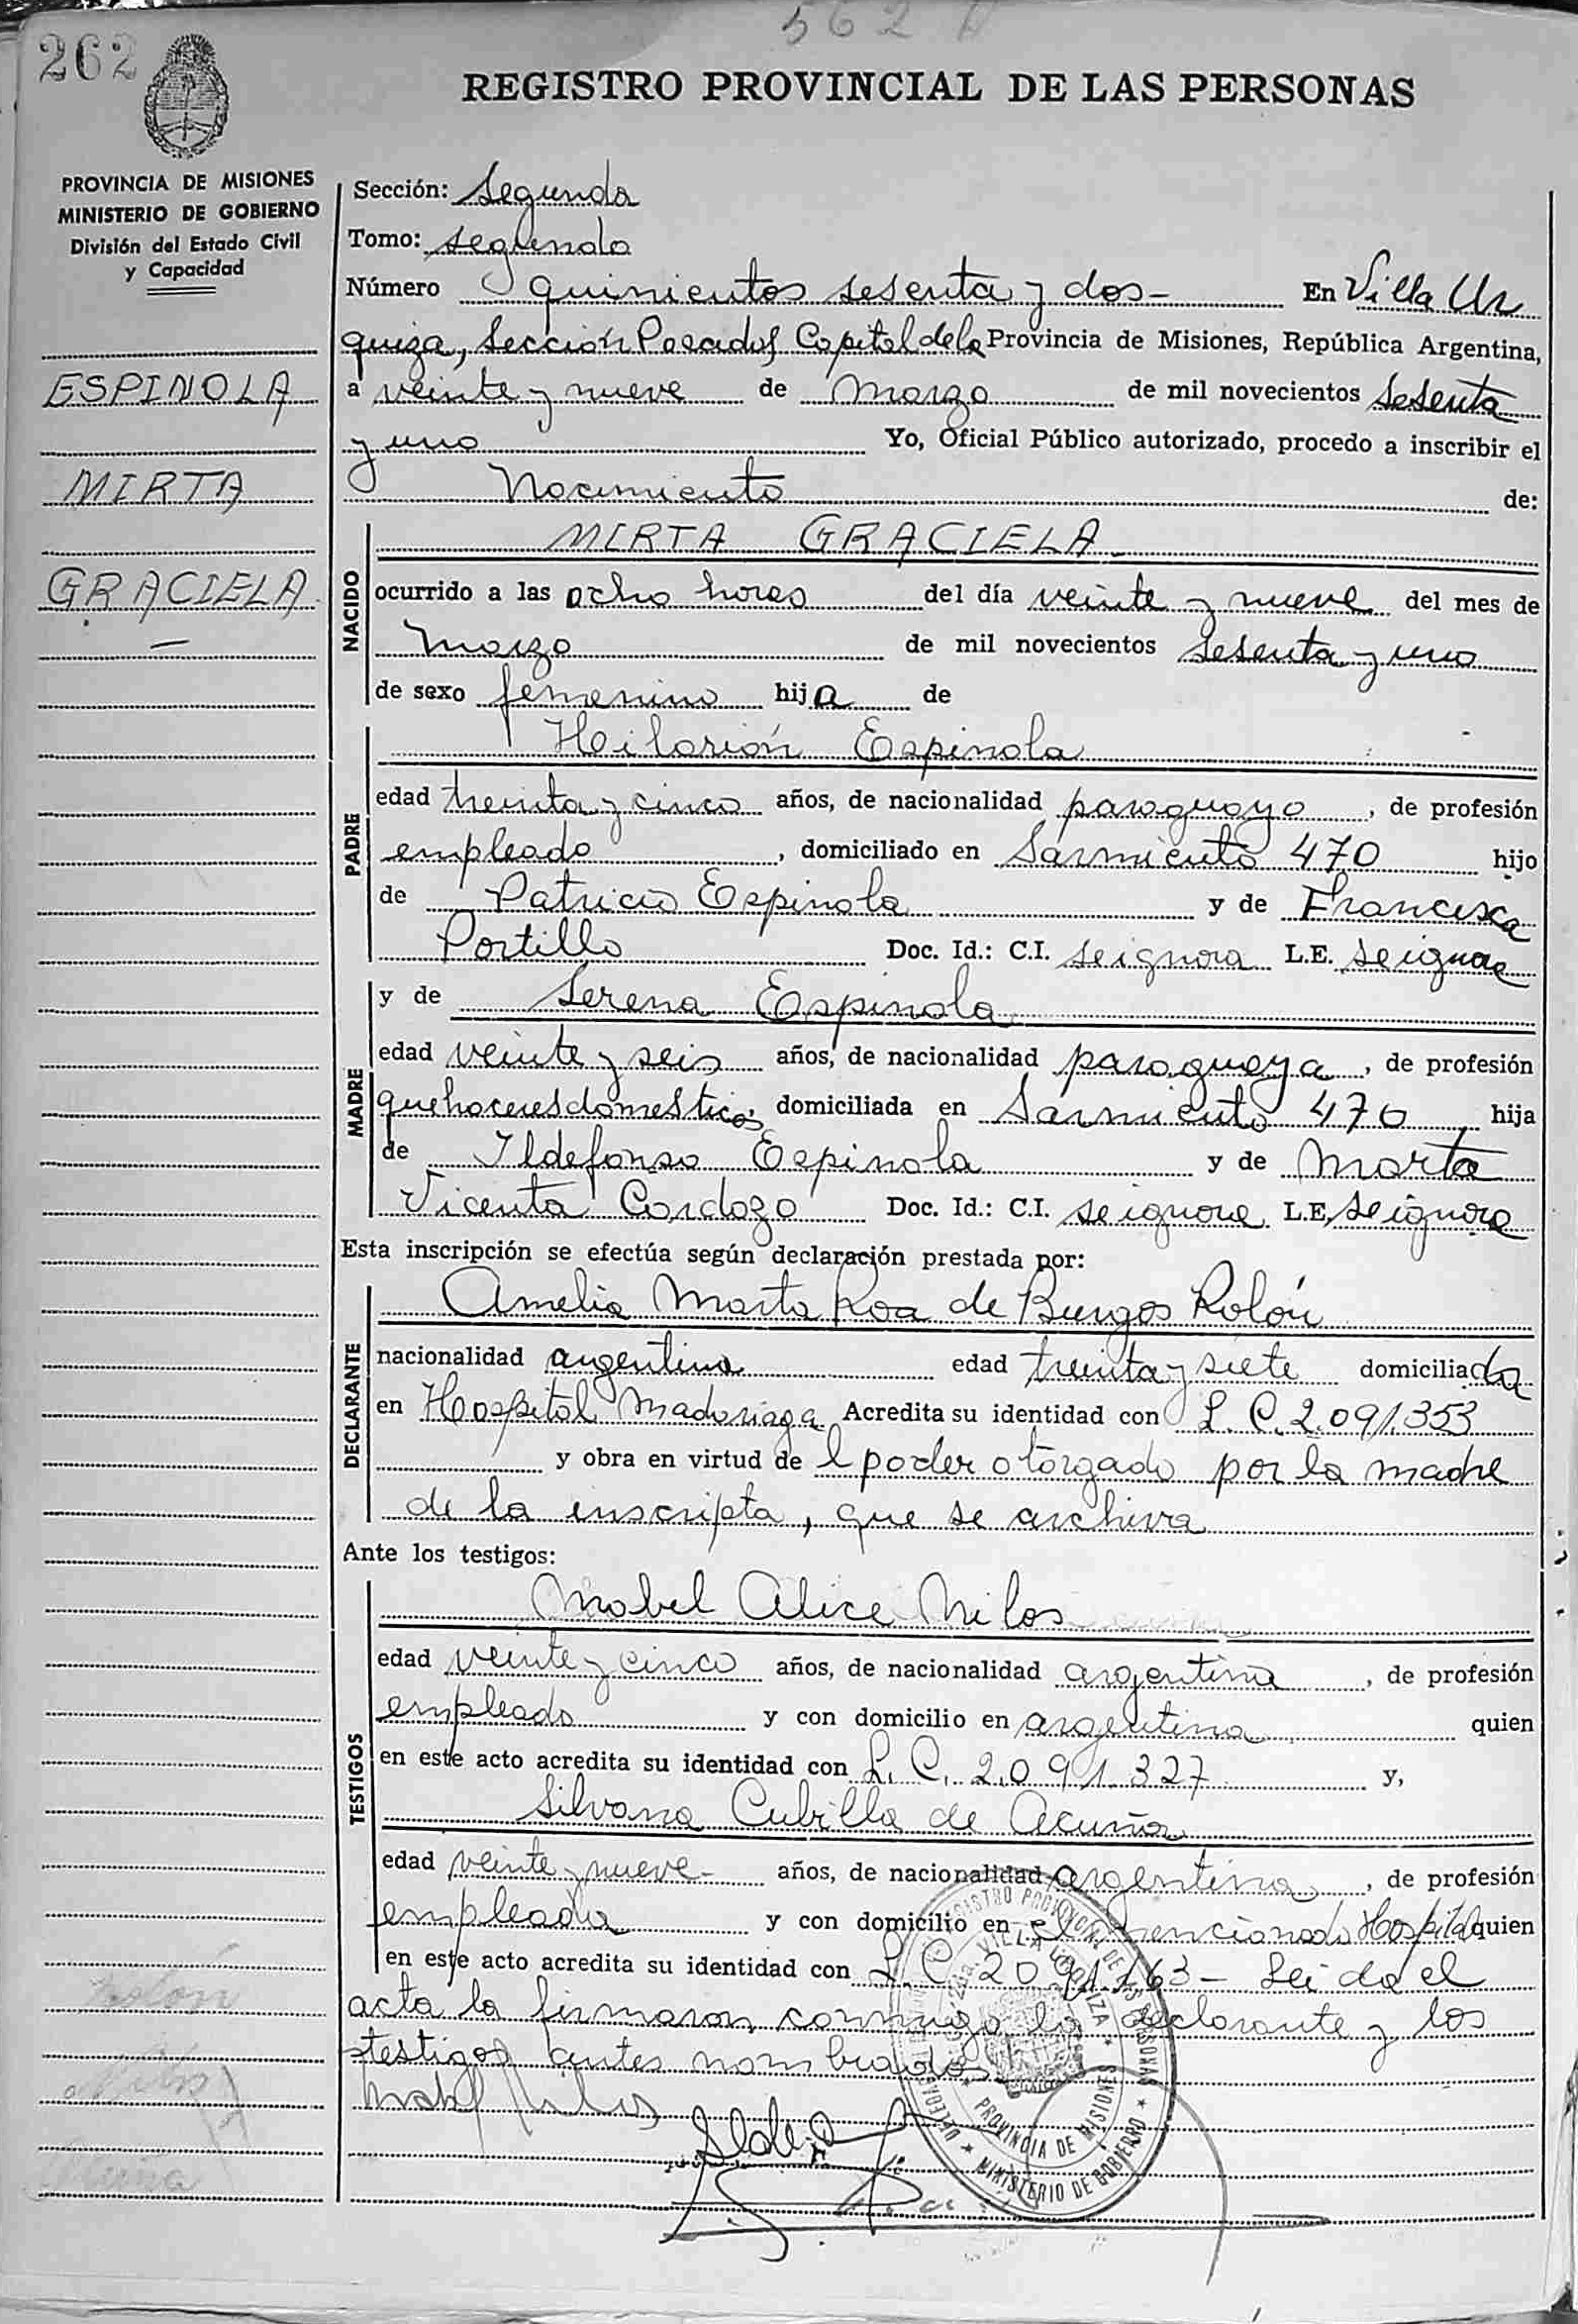 562
262
REGISTRO PROVINCIAL DE LAS PERSONAS
PROVINCIA DE MISIONES
MINISTERIO DE GOBIERNO
División del Estado Civil
y Capacidad
ESPINOLA
MIRTA
GRACIELA
Sección: Segunda
Tomo: segundo
Número quinientos sesenta y dos - En Villa Ur
quiza, Sección Posadas Capital de la Provincia de Misiones, República Argentina,
a veinte y nueve de Marzo de mil novecientos sesenta
y uno Yo, Oficial Público autorizado, procedo a inscribir el
Nacimiento de:
NACIDO
MIRTA GRACIELA
ocurrido a las ocho horas del día veinte y nueve del mes de
Marzo de mil novecientos sesenta y uno
de sexo femenino hija de
PADRE
Heilarión Espinola
edad treinta y cinco años, de nacionalidad paraguayo, de profesión
empleado, domiciliado en Sarmiento 470 hijo
de Patricio Espinola y de Francisca
Portillo Doc. Id.: C.I. se ignora L.E. se ignora
MADRE
y de Serena Espinola
edad veinte y seis años, de nacionalidad paraguaya, de profesión
quehaceres domesticos, domiciliada en Sarmiento 470 hija
de Ildefonso Espinola y de Marta
Vicenta Cardozo Doc. Id.: C.I. se ignora L.E. se ignora
Esta inscripción se efectúa según declaración prestada por:
DECLARANTE
Amelia Marta Roa de Burgos Rolón
nacionalidad argentina edad treinta y siete domiciliada
en Hospital Madariaga Acredita su identidad con L. C. 2.091.353
y obra en virtud de l poder otorgado por la madre
de la inscripta, que se archiva
Ante los testigos:
TESTIGOS
Mabel Alice Milos
edad veinte y cinco años, de nacionalidad argentina, de profesión
empleado y con domicilio en argentina quien
en este acto acredita su identidad con L. C. 2.091.327 y,
Silvana Cubilla de Acuña
edad veinte y nueve - años, de nacionalidad argentina, de profesión
empleada y con domicilio en el mencionado Hospital quien
en este acto acredita su identidad con L C 2091.163 - Leida el
acta la firmaron conmigo la declarante y los
testigos antes nombrados
PROVINCIA DE MISIONES
MINISTERIO DE GOBIERNO